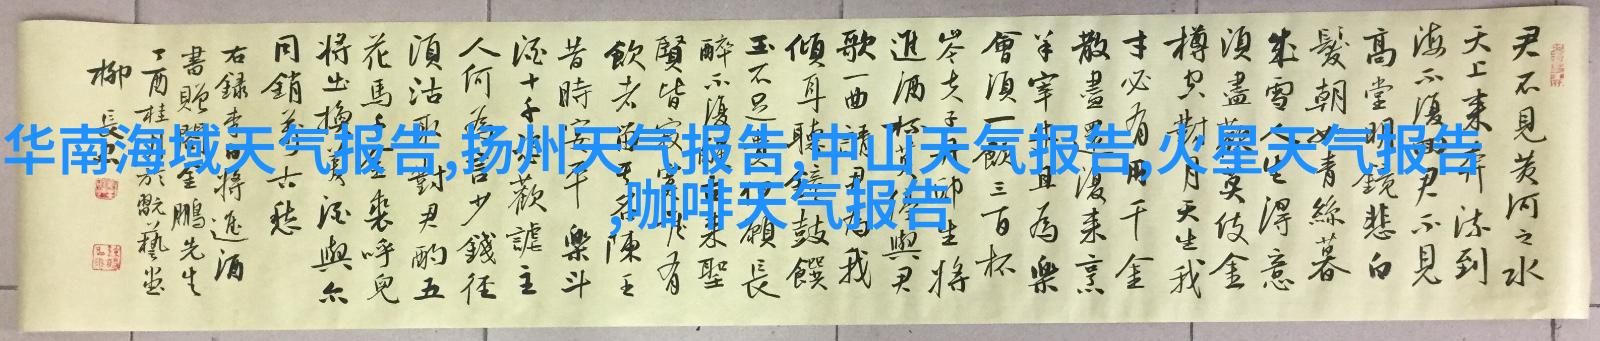 君不見黃河之水
天上来奔流到
海不復回君不見
高堂明鏡悲白
髮朝如青絲暮
成雪人生得意
須盡歡莫使金
樽空對月天生我
才必有用千金
散盡還復来烹
羊宰牛且為樂
會須一飲三百杯
岑夫子丹邱生將
進酒杯莫停與君
歌一曲請君為我
傾耳聽鐘鼓饌
玉不足貴但願長
醉不復醒古来聖
賢皆寂寞惟有
飲者留其名陳王
昔時宴平樂斗
酒十千恣歡謔主
人何為言少錢径
須沽取對君酌五
花馬千金裘呼兒
将出換美酒與尔
同銷萬古愁
右録李白將進酒
書贈閻金鵬先生
丁酉桂月於翫藝堂
柳長忠
华南海域天气报告,扬州天气报告,中山天气报告,火星天气报告
,咖啡天气报告